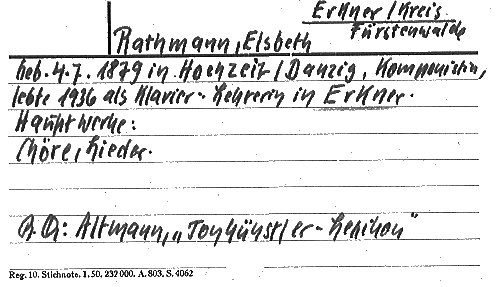 Erkner/Kreis
Fürstenwalde
Rathmann, Elsbeth
Geb. 4.7.1879 in Hochzeit/Danzig, Komponistin,
lebte 1936 als Klavier-Lehrerin in Erkner.
Hauptwerke:
Chöre, Lieder.
A.Q.: Altmann, „Tonkünstler-Lexikon"
Reg. 10. Stichnote. 1. 50. 232 000. A. 803. S. 4062